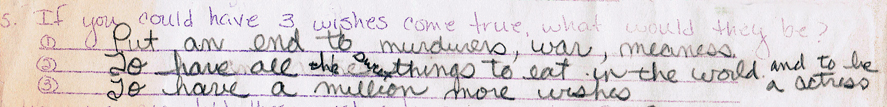 5. If you could have 3 wishes come true, what would they be?
① Put an end to murduers, war, meaness,
② To have all the things to eat in the world. and to be a actress
③ To have a million more wishes